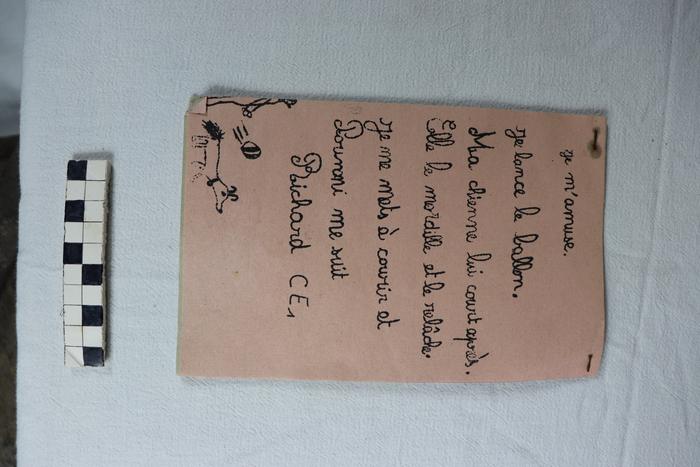 Je m'amuse.
Je lance le ballon.
Ma chienne lui court après.
Elle le mordille et le relâche.
Je me mets à courir et
Pounoni me suit
Richard CE1